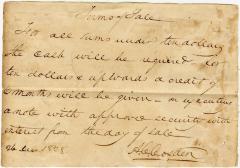 Terms of Sale
For all sums under ten dollars
the cash will be required for
ten dollars & upwards a credit of
6 months will be given on executing
a note with approved security with
interest from the day of sale
26 Dec 1868